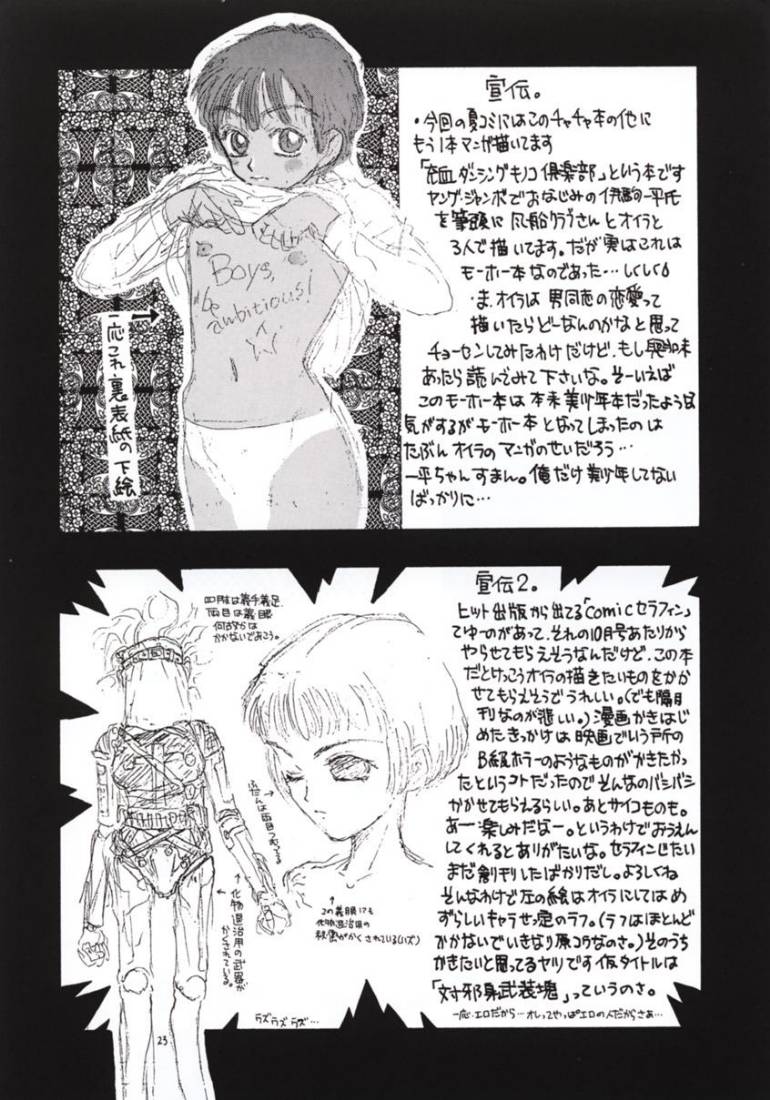 宣伝。
・今回の夏コミにはこのチャチャ本の他に
もう1本マンガ描いてます
「充血ダンシングキノコ倶楽部」という本です
ヤング・ジャンボでおなじみの伊駒一平氏
を筆頭に風船クラブさんとオイラと
3人で描いてます。だが実はこれは
モーホー本なのであった…しくしく
・ま、オイラは男同志の恋愛って
描いたらどーなんのかなと思って
チョーセンしてみたわけだけど、もし興味
あったら読んでみて下さいな。そーいえば
このモーホー本は本来美少年本だったような
気がするがモーホー本となってしまったのは
たぶんオイラのマンガのせいだろう…
一平ちゃんすまん。俺だけ美少年してない
ばっかりに…
Boys,
be
ambitious!
一応これ裏表紙の下絵
宣伝2。
ヒット出版から出てる「comicセラフィン」
てゆーのがあって、それの10月号あたりから
やらせてもらえそうなんだけど、この本
だとけっこうオイラの描きたいものをかか
せてもらえそうでうれしい。(でも隔月
刊なのが悲しい。)漫画かきはじ
めたきっかけは映画でいう所の
B級ホラーのようなものがかきたかっ
たというコトだったのでそんなのバシバシ
かかせてもらえるらしい。あとサイコものも。
あー楽しみだなー。というわけでおうえん
してくれるとありがたいな。セラフィンじたい
まだ創刊したばかりだし。よろしくね
そんなわけで左の絵はオイラにしてはめ
ずらしいキャラせってい定のラフ。(ラフはほとんど
かかないでいきなり原コウなのさ。)そのうち
かきたいと思ってるヤツです仮タイトルは
「対邪身武装塊」っていうのさ。
一応、エロだから…オレってやっぱエロの人だからさあ…
四肢は義手義足
両目は義眼
何故かは
かかないであこう。
ふだんは両目つむってる
↑
この義眼にも
化物退治用の
秘密がかくされている(ハズ)
化物退治用の武器が
かくされている。
ラズラズラズ…
23